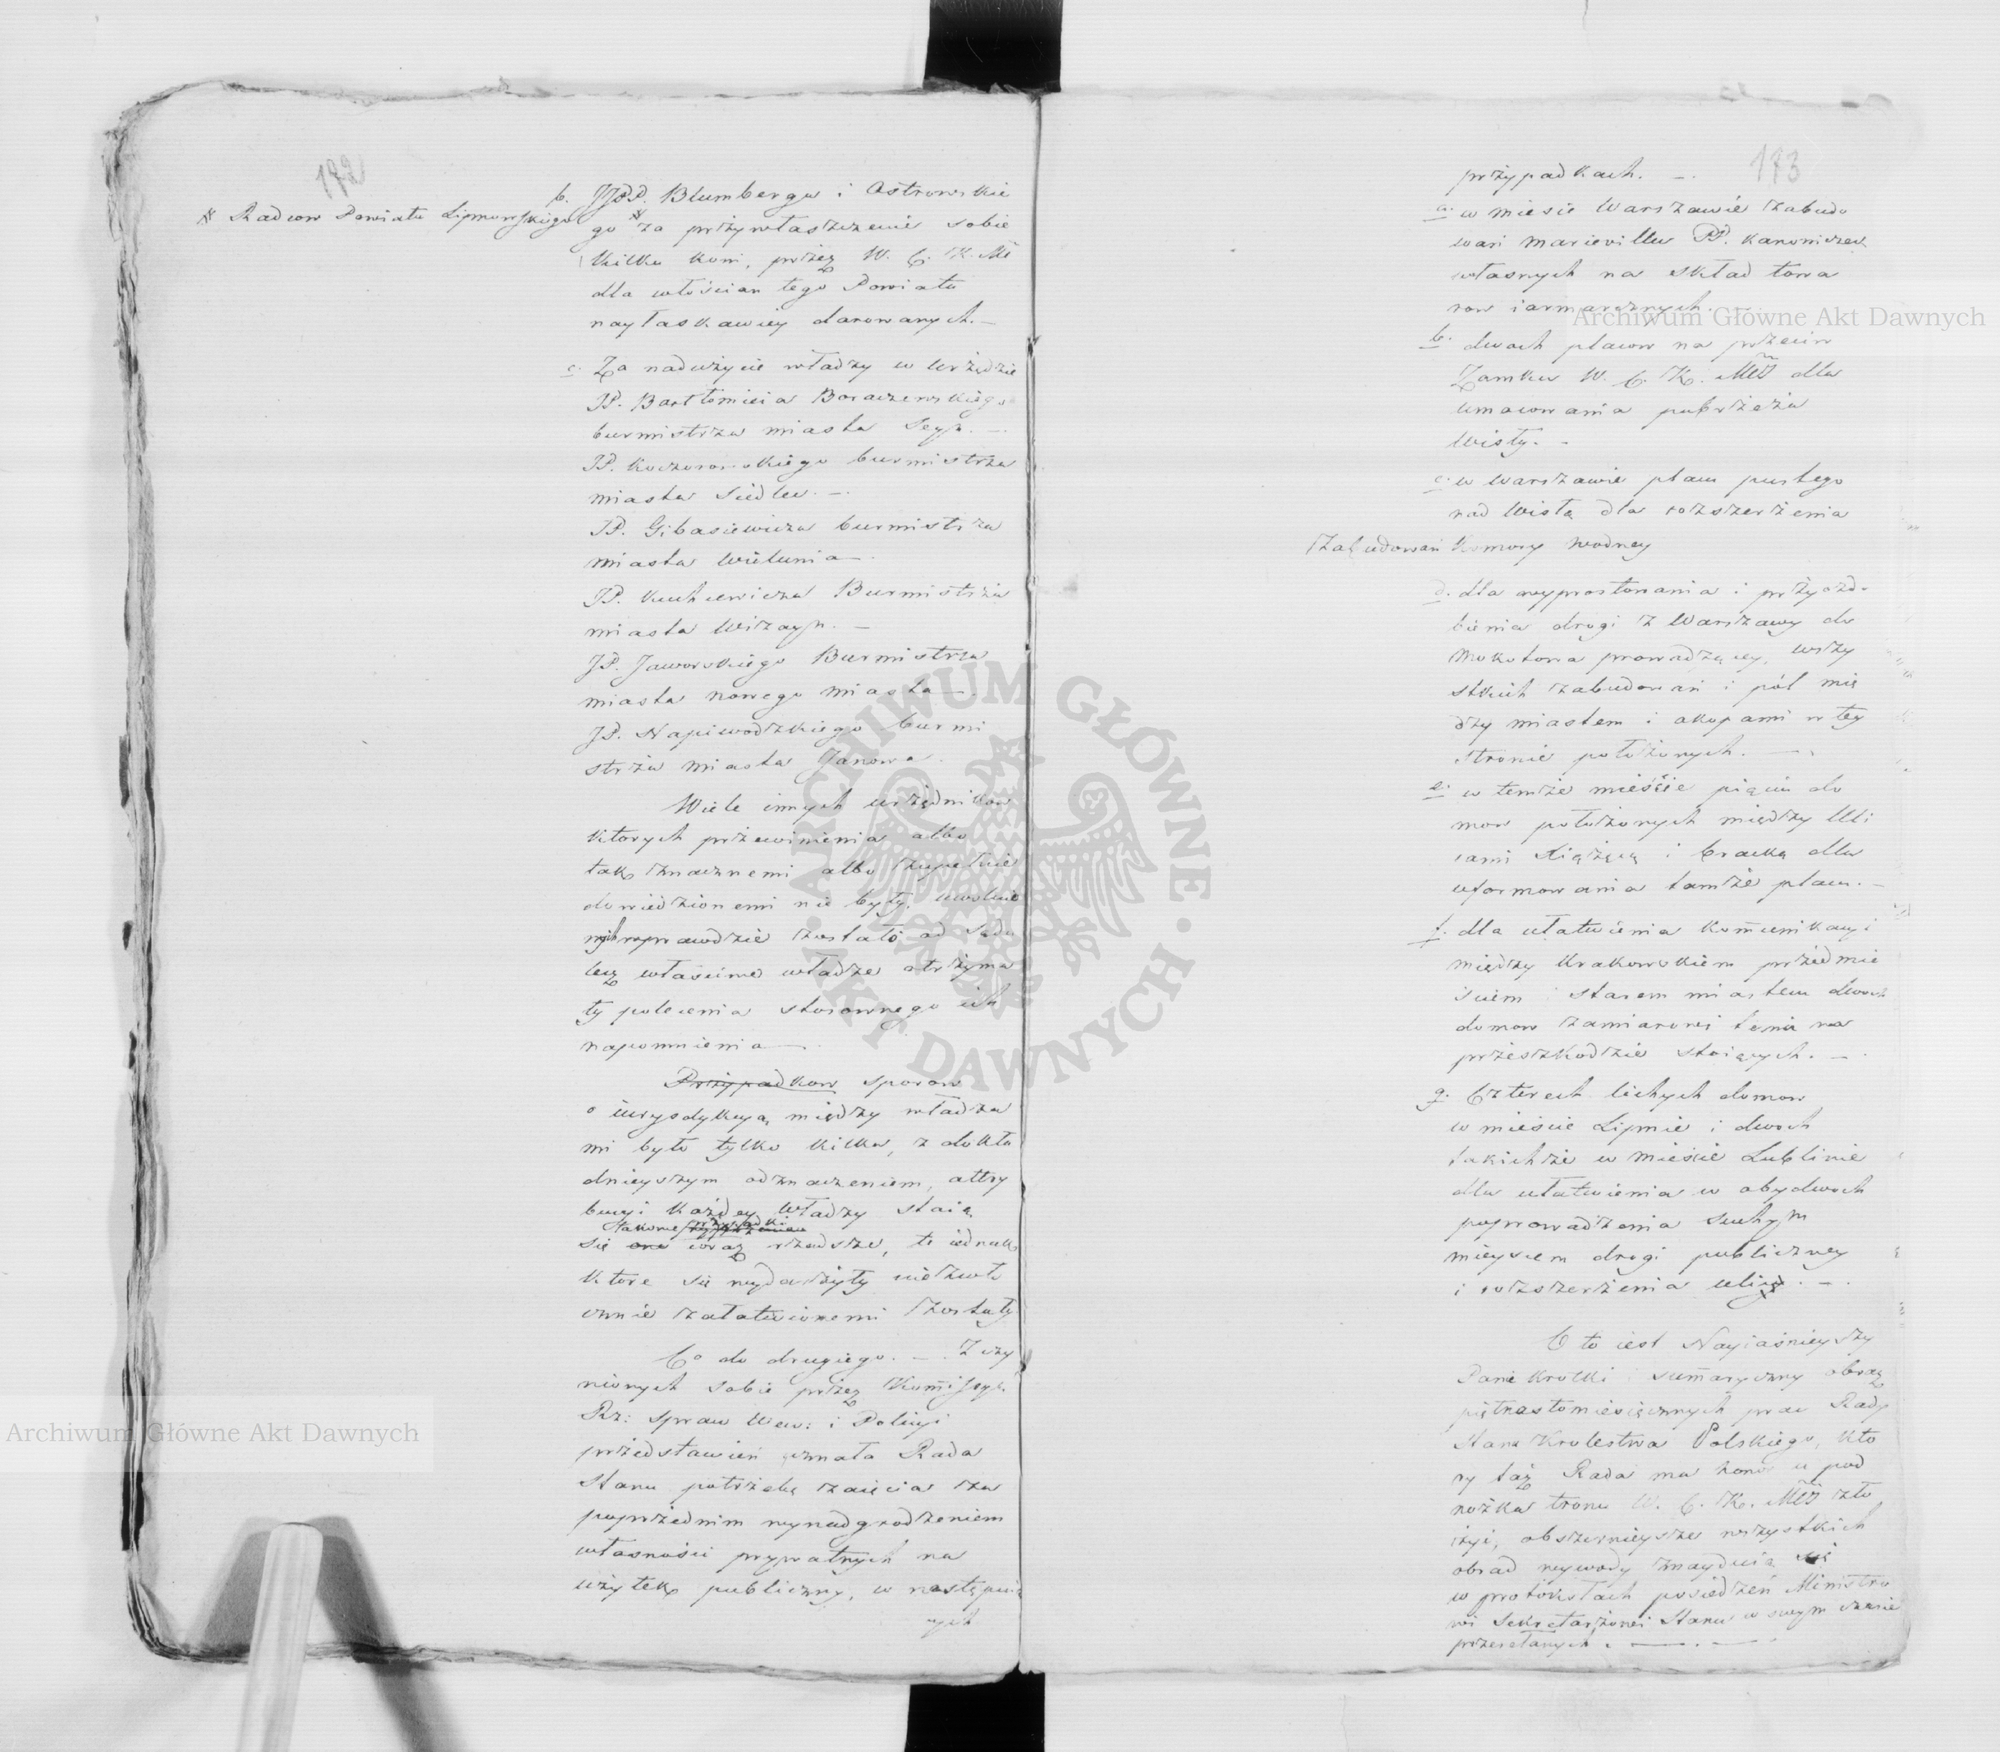 172
b. JJPP. Blumberga i Ostrowskie
# Radcow Powiatu Lipnowskiego
go # za przywłaszczenie sobie
kilku koni, przez W. C. K. Mć
dla włościan tego Powiatu
nayłaskawiey darowanych. —
c. Za nadużycie władzy w Urzędzie
JP. Bartłomieia Boraczewskiego
burmistrza miasta Seyn. —
JP. Koczorowskiego burmistrza
miasta Siedlec. —
JP. Gibasiewicza burmistrza
miasta Wielunia —
JP. Kuchcewicza Burmistrza
miasta Wizayn. —
JP. Jaworskiego Burmistrza
miasta nowego miasta —
JP. Napiwodzkiego burmi
strza miasta Janowa.
Wiele innych urzędnikow
ktorych przewinienia albo
tak znacznemi albo zupełnie
dowiedzionemi nie były, uwolnio
nych wprawdzie zostało od Sądu
lecz właściwe władze otrzyma
ły polecenia stosownego ich
napomnienia —
Przypadkow sporow
o iurysdykcyą między władza
mi było tylko kilka, z dokła
dnieyszym oznaczeniem, attry
bucyi każdey władzy staią
się one coraz rzadsze, te iednak
ktore się wydarzyły niezwło
cznie załatwionemi zostały
Co do drugiego. — Z uczy
nionych sobie przez Kommissyą
Rz: Spraw Wew: i Policyi
przedstawień uznała Rada
Stanu potrzebę zaięcia za
poprzednim wynadgrodzeniem
własności prywatnych na
użytek publiczny, w następuią
cych
173
przypadkach. —
a. w miescie Warszawie zabudo
wań marievillu PP. Kanoniczek
własnych na skład towa
row iarmarcznych.
b. dwoch placow na przeciw
Zamku W. C. K. Mći dla
umocowania pobrzeża
Wisły. —
c. w Warszawie placu pustego
nad Wisłą dla rozszerzenia
zabudowań Komory wodney
d. dla wyprostowania i przyozdo
bienia drogi z Warszawy do
Mokotowa prowadzącey, wszy
stkich zabudowań i pól mię
dzy miastem i okopami w tey
stronie położonych. —
e. w temże mieście pięciu do
mow położonych między Uli
cami Xiążęcą i bracką dla
uformowania tamże placu. —
f. dla ułatwienia kommunikacyi
między krakowskiem przedmie
ściem i starem miastem dwoch
domow zamiarowi temu na
przeszkodzie stoiących. —
g. Czterech lichych domow
w mieście Lipnie i dwoch
takichże w mieście Lublinie
dla ułatwienia w obydwoch
poprowadzenia suchym
mieyscem drogi publiczney
i rozszerzenia ulicy. —
O to iest Nayiaśnieyszy
Panie krotki i summaryczny obraz
piętnastomiesięcznych prac Rady
Stanu Krolestwa Polskiego, kto
ry taż Rada ma honor u pod
nożka tronu W. C. K. Mći zło
żyć, obszernieysze wszystkich
obrad wywody znayduią się
w protokułach posiedzeń Ministro
wi Sekretarzowi Stanu w swym czasie
przesełanych. —